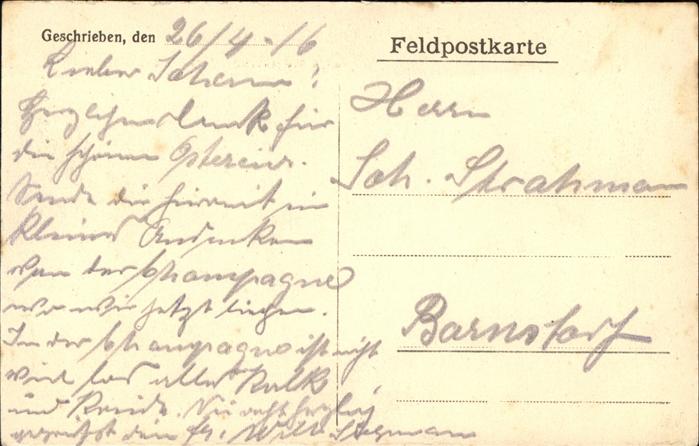 Geschrieben, den 26/4-16
Feldpostkarte
Lieber Johann!
Herzlichen Dank für
die schönen Ostereier.
Sende dir hiermit ein
kleines Andenken
von der Champagne
wo wir jetzt liegen.
In der Champagne ist nicht
viel los alles Kalk
und Kreide. Nun recht herzlich
gegrüßt dein Fr. Wilh.
Herrn
Joh. Strahmann
Barnstorf